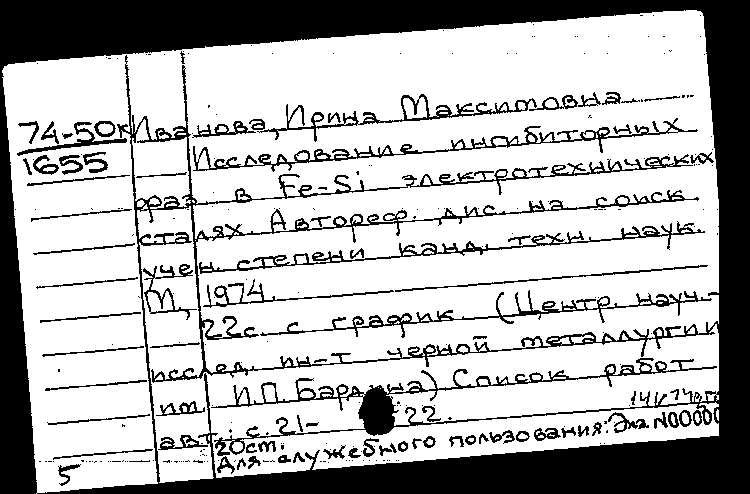 74-50к Иванова, Ирина Максимовна.
1655 Исследование ингибиторных
фаз в Fe-Si электротехнических
сталях. Автореф. дис. на соиск.
учен. степени канд. техн. наук.
М., 1974.
22с. с график. (Центр. науч.-
исслед. ин-т черной металлургии
им. И.П. Бардина) Список работ
авт.: с. 21-22.
20см.
Для служебного пользования: Экз N00000
5